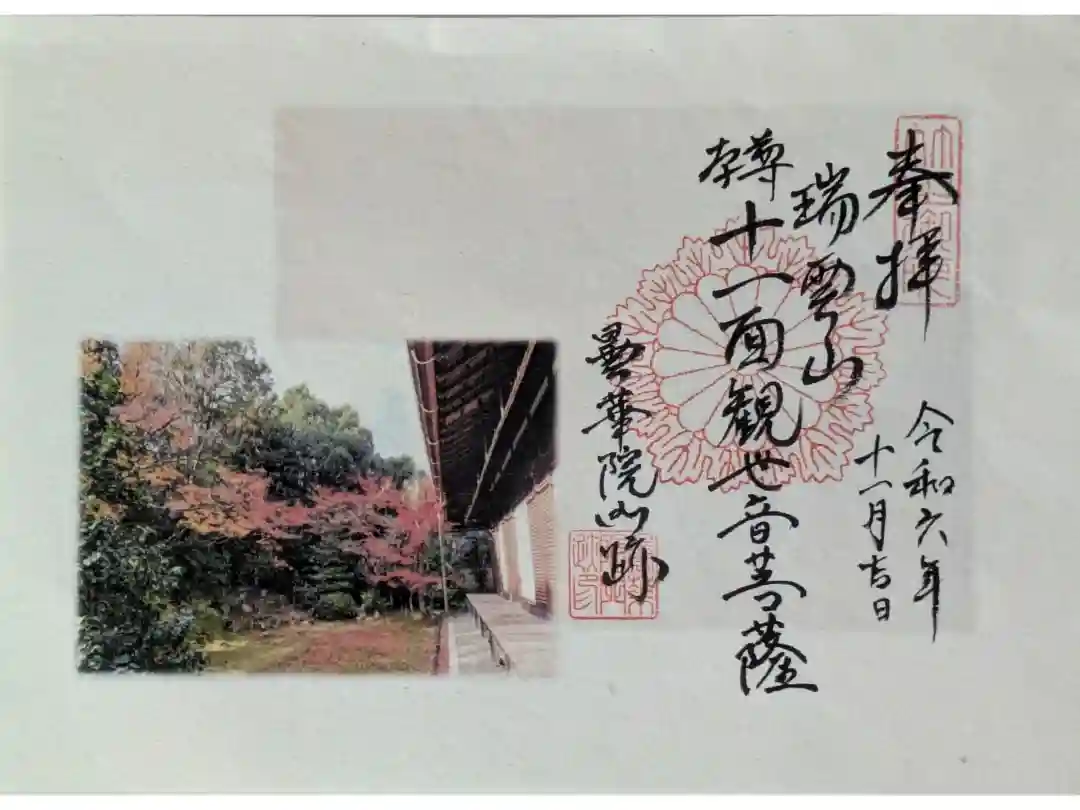 奉拝
令和六年
十一月吉日
瑞雲山
本尊 十一面観世音菩薩
曇華院門跡